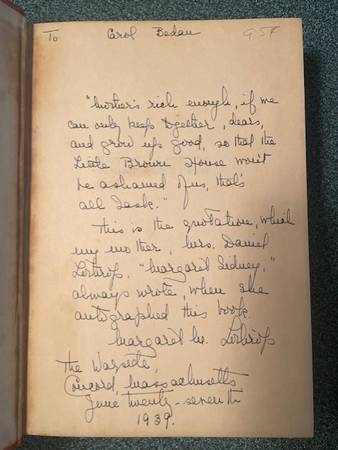 To Carol Bedau
"Mother's rich enough, if we
can only keep together, dears,
and grow up good, so that the
Little Brown House won't
be ashamed of us, that's
all I ask."
This is the quotation, which
my mother, Mrs. Daniel
Lothrop, "Margaret Sidney,"
always wrote, when she
autographed this book.
Margaret M. Lothrop
The Wayside,
Concord, Massachusetts
June twenty-seventh
1939.